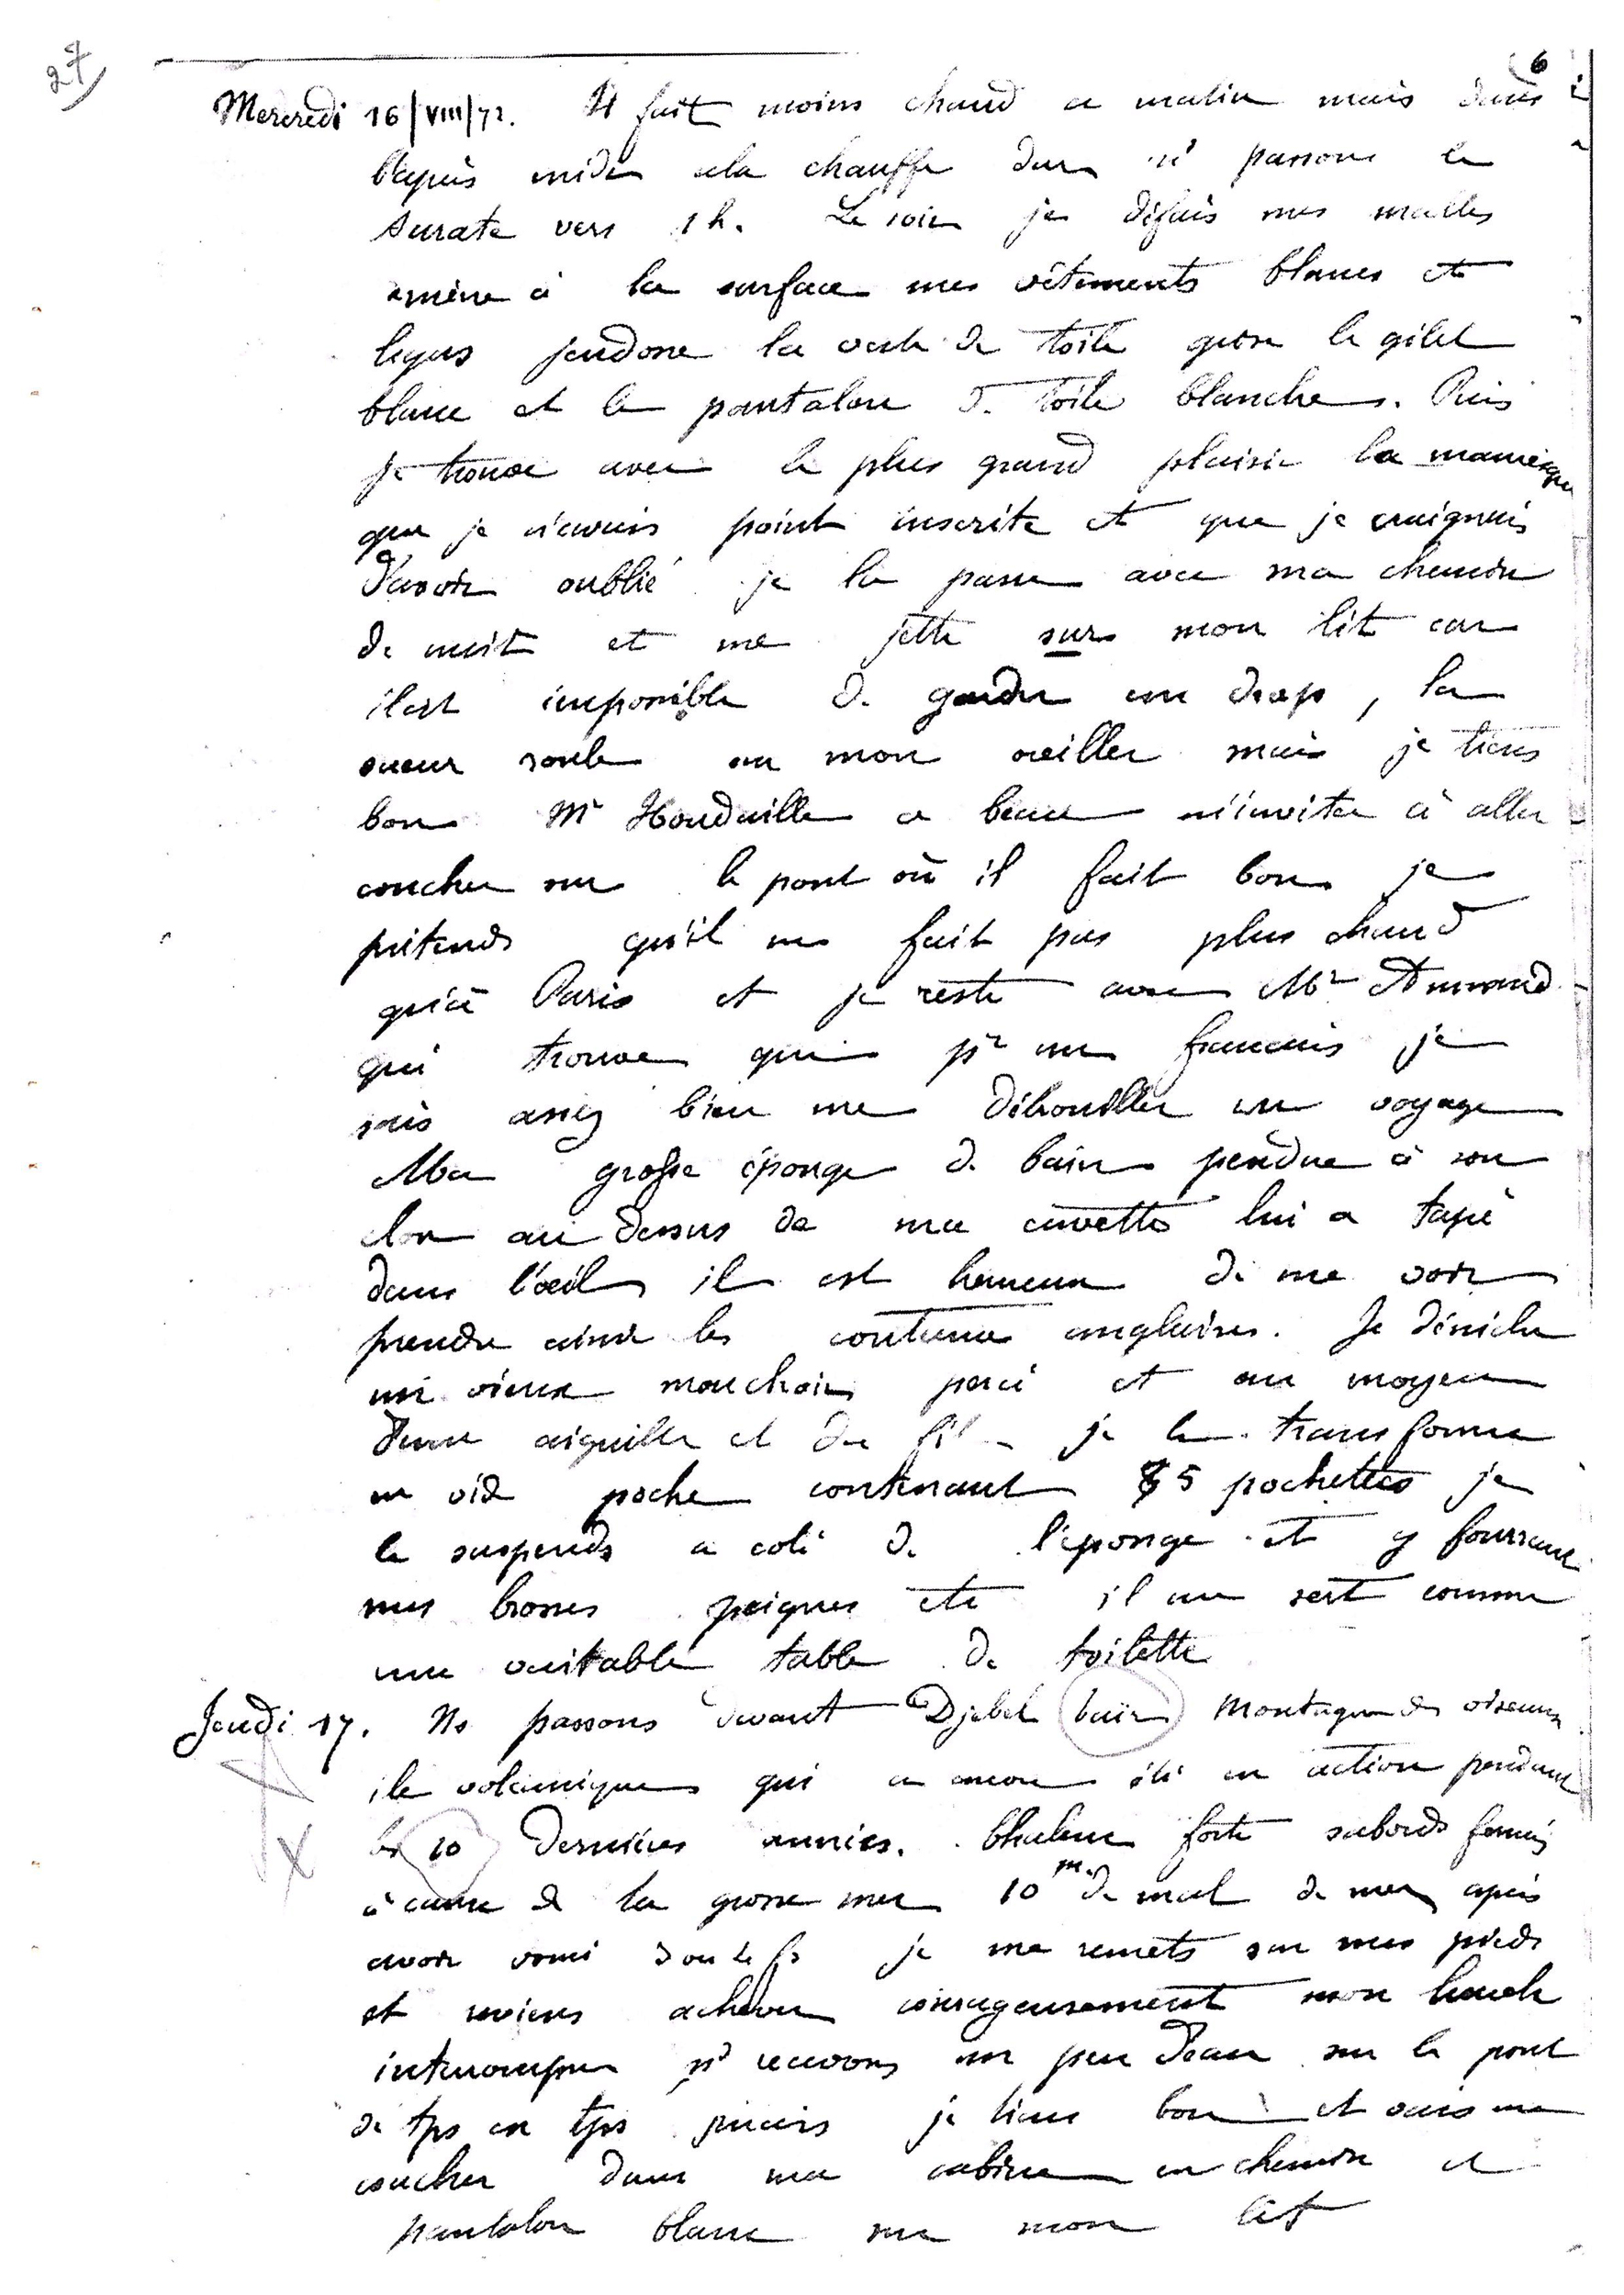 27
6
Mercredi 16/VIII/72. Il fait moins chaud ce matin mais dans
l'après midi cela chauffe dur ns passons le
Surate vers 1h. Le soir je défais mes malles
amène à la surface mes vêtements blancs et
légers j'endosse la veste de toile grise le gilet
blanc et le pantalon de toile blanche. Puis
je trouve avec le plus grand plaisir la
que je n'avais point inscrite et que je craignais
d'avoir oublié je la passe avec ma chemise
de nuit et me jette sur mon lit car
il est impossible de garder un drap, la
sueur roule sur mon oreiller mais je tiens
bon Mr Houdaille a beau m'inviter à aller
coucher sur le pont où il fait bon je
prétends qu'il ne fait pas plus chaud
qu'à Paris et je reste avec Mr
qui trouve que pr un français je
sais assez bien me débrouiller en voyage
Ma grosse éponge de bain pendue à son
clou au dessus de ma cuvette lui a tapé
dans l'oeil il est heureux de me voir
prendre ainsi les coutumes anglaises. Je déniche
un vieux mouchoir percé et au moyen
d'une aiguille et du fil je le transforme
en vide poche contenant 5 pochettes je
le suspends a coté de l'éponge et y fourrant
mes brosses peignes etc il me sert comme
une véritable table de toilette
Jeudi 17. Ns passons devant Djebel Tair Montagne des oiseaux
ile volcanique qui a encore été en action pendant
les 10 dernières années. Chaleur forte sabords fermés
à cause de la grosse mer 10 m. de mal de mer après
avoir vomi je me remets sur mes pieds
et reviens achever courageusement mon lunch
interrompu ns recevons un peu d'eau sur le pont
de tps en tps mais je tiens bon et vais me
coucher dans ma cabine en chemise et
pantalon blanc sur mon lit